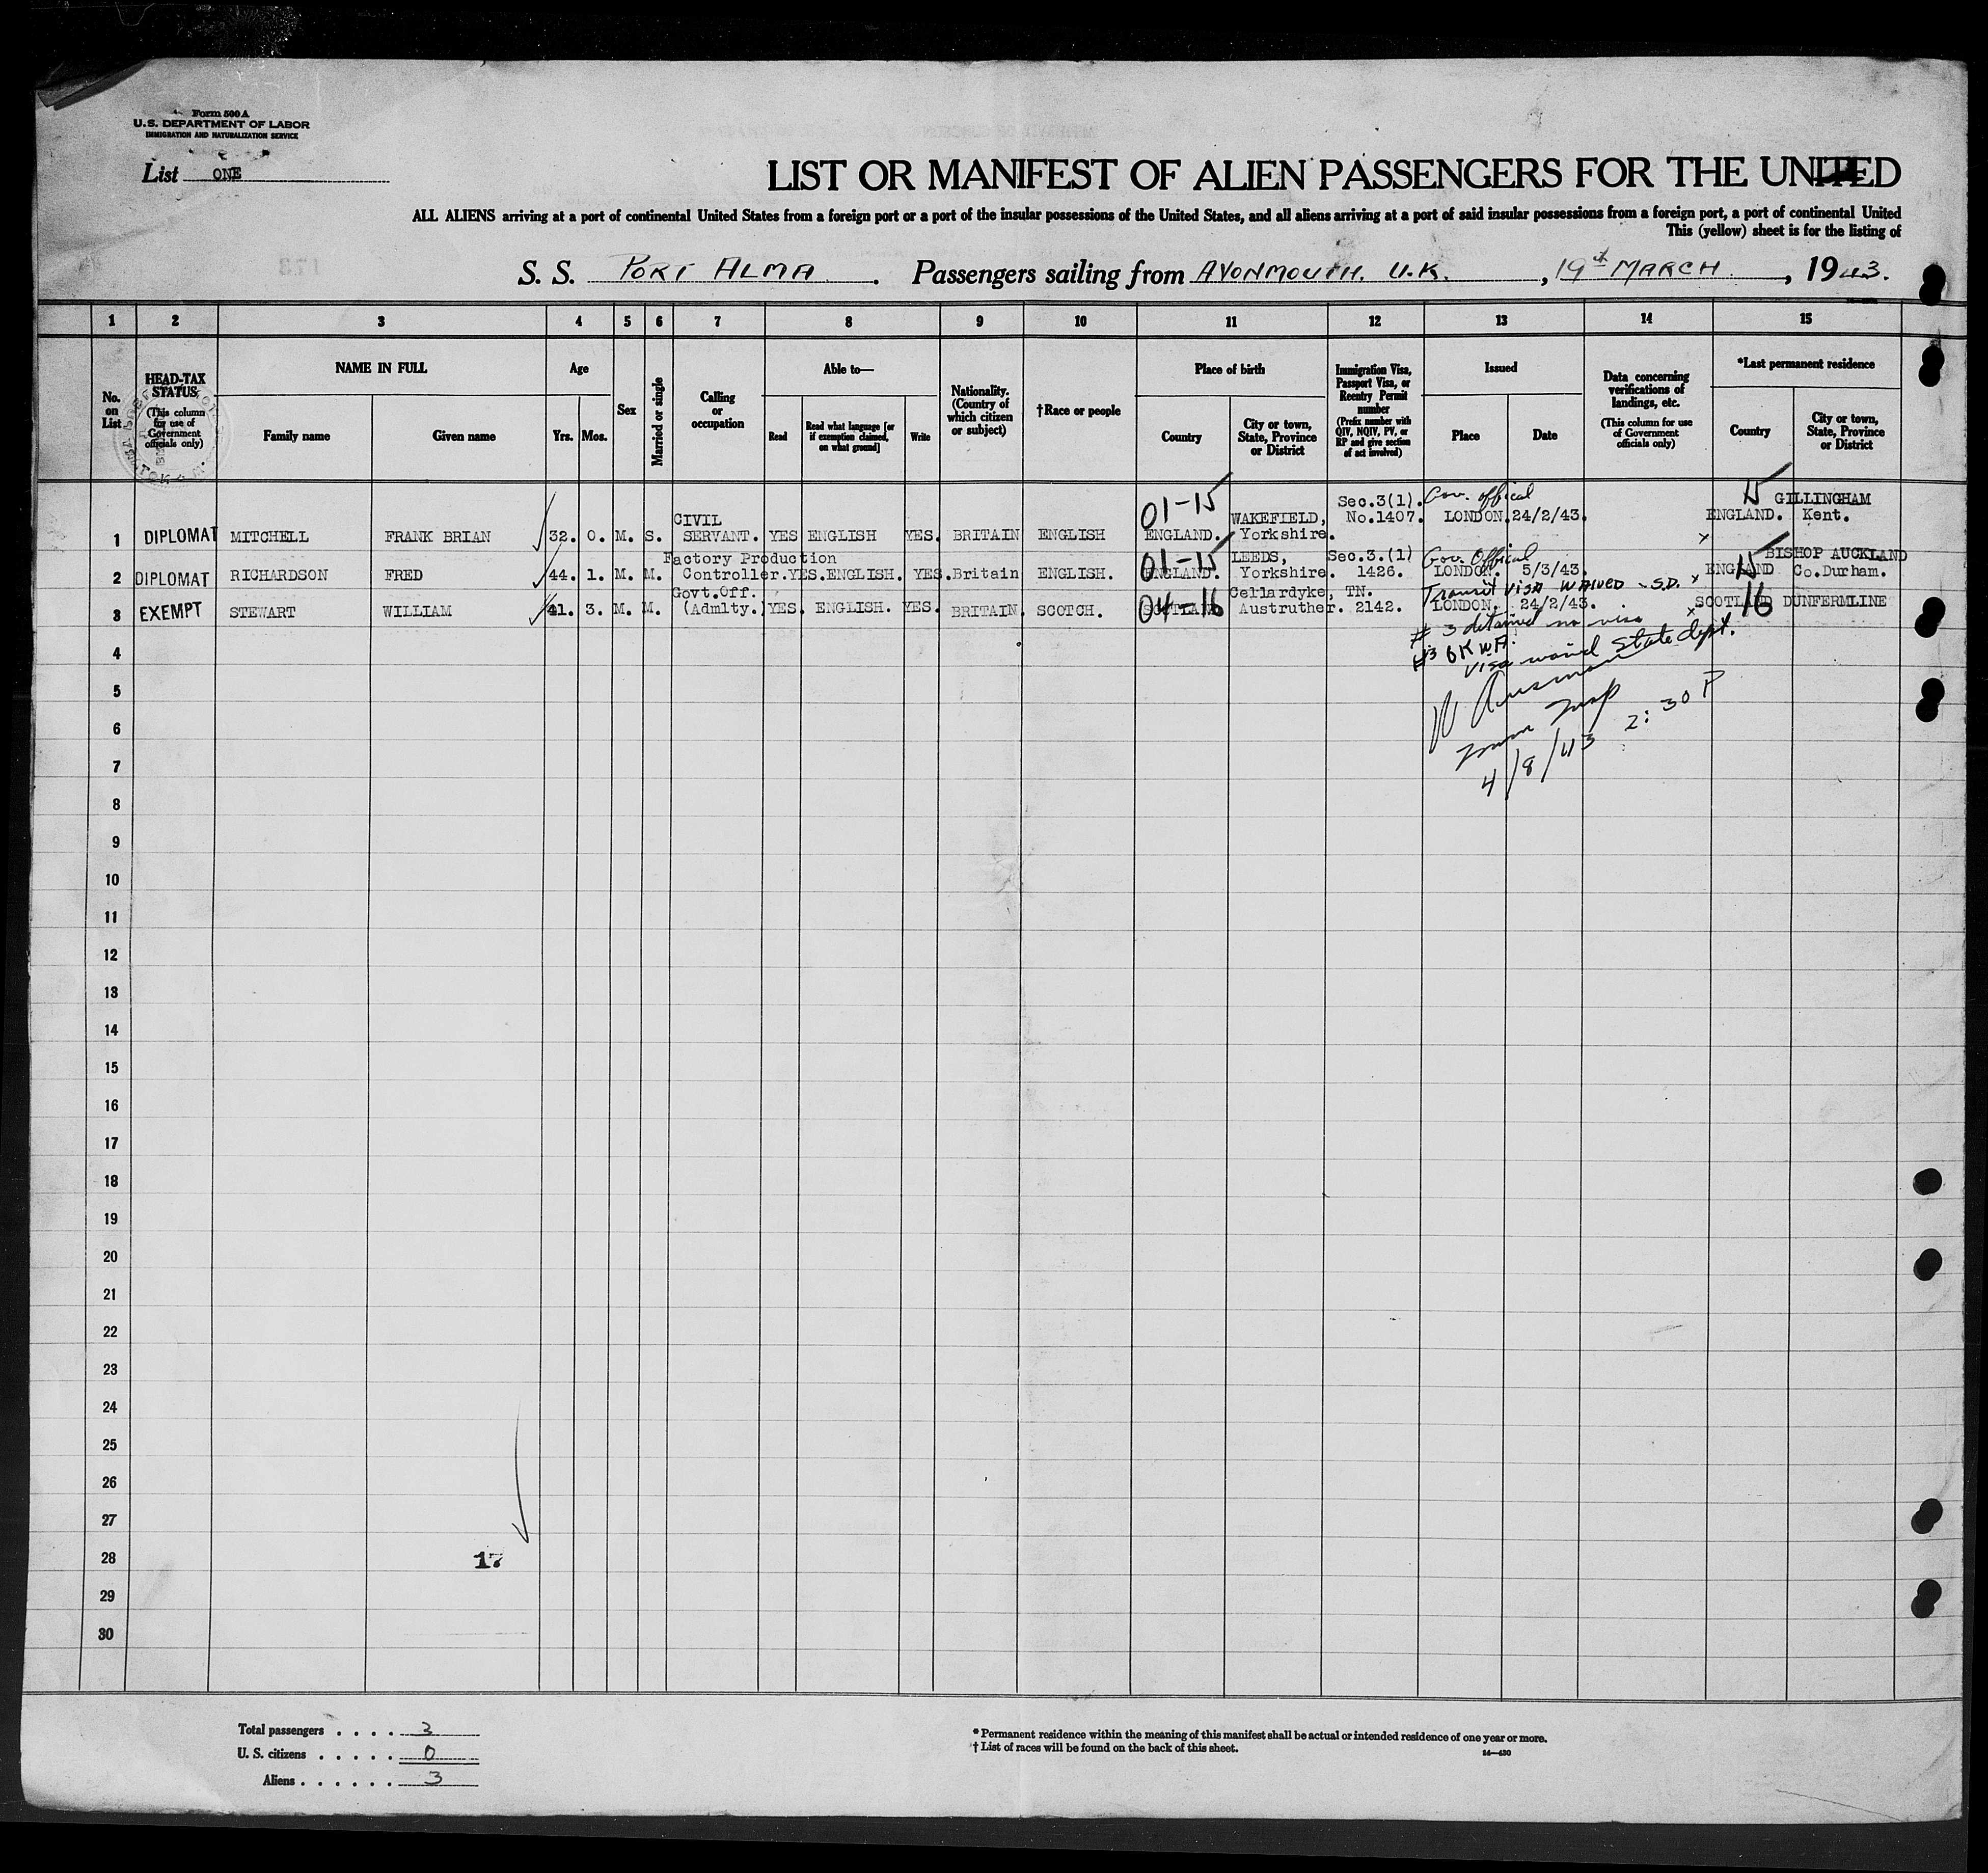 Form 500 A
U.S. DEPARTMENT OF LABOR
IMMIGRATION AND NATURALIZATION SERVICE
List ONE
LIST OR MANIFEST OF ALIEN PASSENGERS FOR THE UNITED
ALL ALIENS arriving at a port of continental United States from a foreign port or a port of the insular possessions of the United States, and all aliens arriving at a port of said insular possessions from a foreign port, a port of continental United
This (yellow) sheet is for the listing of
S. S. PORT ALMA. Passengers sailing from AVONMOUTH, U.K., 19th MARCH, 1943.
1 2 3 4 5 6 7 8 9 10 11 12 13 14 15
No. on List
HEAD-TAX STATUS (This column for use of Government officials only)
NAME IN FULL
Family name Given name
Age
Yrs. Mos.
Sex
Married or single
Calling or occupation
Able to—
Read Read what language [or if exemption claimed, on what ground] Write
Nationality. (Country of which citizen or subject)
†Race or people
Place of birth
Country City or town, State, Province or District
Immigration Visa, Passport Visa, or Reentry Permit number (Prefix number with QIV, NQIV, PV, or RP and give section of act involved)
Issued
Place Date
Data concerning verifications of landings, etc. (This column for use of Government officials only)
*Last permanent residence
Country City or town, State, Province or District
01-15 Sec.3(1). Gov. offical 15 GILLINGHAM
CIVIL WAKEFIELD, No.1407. LONDON. 24/2/43. ENGLAND. Kent.
1 DIPLOMAT MITCHELL FRANK BRIAN 32. 0. M. S. SERVANT. YES ENGLISH YES. BRITAIN ENGLISH ENGLAND. Yorkshire.
Factory Production 01-15 LEEDS, Sec.3.(1) Gov. Offical 15 BISHOP AUCKLAND
2 DIPLOMAT RICHARDSON FRED 44. 1. M. M. Controller. YES. ENGLISH. YES. Britain ENGLISH. ENGLAND. Yorkshire. 1426. LONDON. 5/3/43. ENGLAND Co.Durham.
Govt.Off. Cellardyke, TN. Transit VISA WAIVED - S.D.
3 EXEMPT STEWART WILLIAM 41. 3. M. M. (Admlty.) YES. ENGLISH. YES. BRITAIN. SCOTCH. SCOTLAND 04-16 Austruther. 2142. LONDON. 24/2/43. SCOTLAND 16 DUNFERMLINE
# 3 detained no visa
4 #3 OK WA.
visa waived State dept.
5
6
2:30 P
7
4/8/43
8
9
10
11
12
13
14
15
16
17
18
19
20
21
22
23
24
25
26
27
28 17
29
30
Total passengers . . . . 3
U. S. citizens . . . . . 0
Aliens . . . . . . 3
* Permanent residence within the meaning of this manifest shall be actual or intended residence of one year or more.
† List of races will be found on the back of this sheet.
14—430